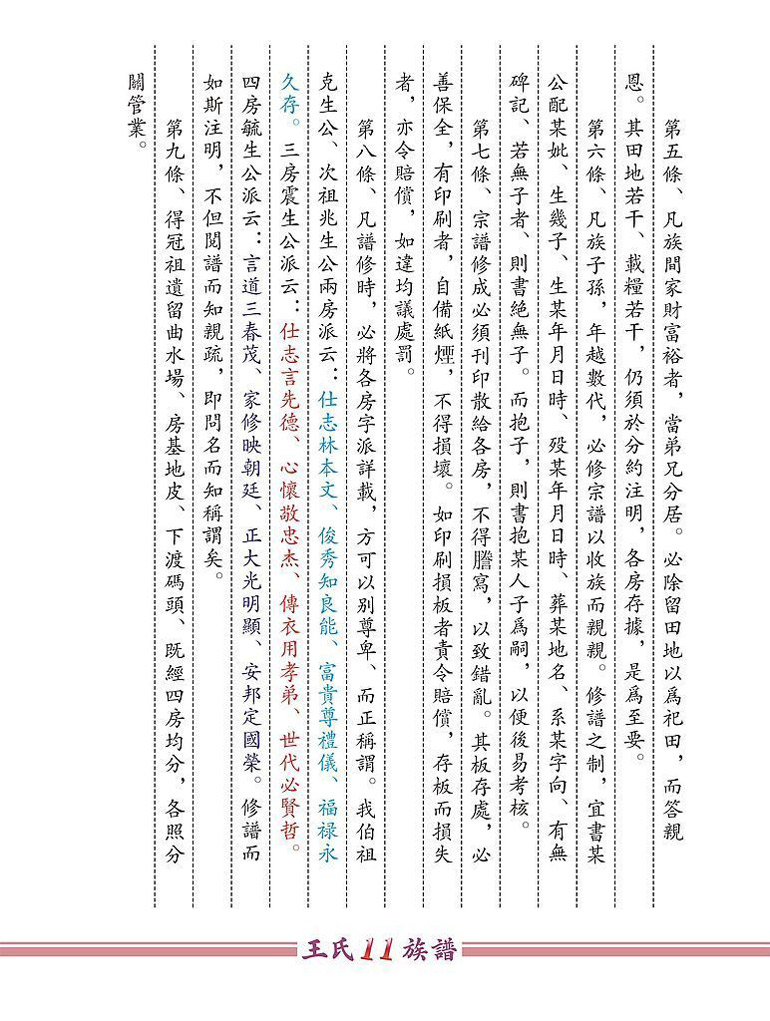 第五條、凡族間家財富裕者，當弟兄分居。必除留田地以爲祀田，而答親
恩。其田地若干、載糧若干，仍須於分約注明，各房存據，是爲至要。
第六條、凡族子孫，年越數代，必修宗譜以收族而親親。修譜之制，宜書某
公配某妣、生幾子、生某年月日時、殁某年月日時、葬某地名、系某字向、有無
碑記、若無子者、則書絶無子。而抱子，則書抱某人子爲嗣，以便後易考核。
第七條、宗譜修成必須刊印散給各房，不得謄寫，以致錯亂。其板存處，必
善保全，有印刷者，自備紙煙，不得損壞。如印刷損板者責令賠償，存板而損失
者，亦令賠償，如違均議處罰。
第八條、凡譜修時，必將各房字派詳載，方可以别尊卑、而正稱謂。我伯祖
克生公、次祖兆生公兩房派云：仕志林本文、俊秀知良能、富貴尊禮儀、福禄永
久存。三房震生公派云：仕志言先德、心懷敬忠杰、傳衣用孝弟、世代必賢哲。
四房毓生公派云：言道三春茂、家修映朝廷、正大光明顯、安邦定國榮。修譜而
如斯注明，不但閲譜而知親疏，即問名而知稱謂矣。
第九條、得冠祖遺留曲水場、房基地皮、下渡碼頭、既經四房均分，各照分
關管業。
王氏11族譜